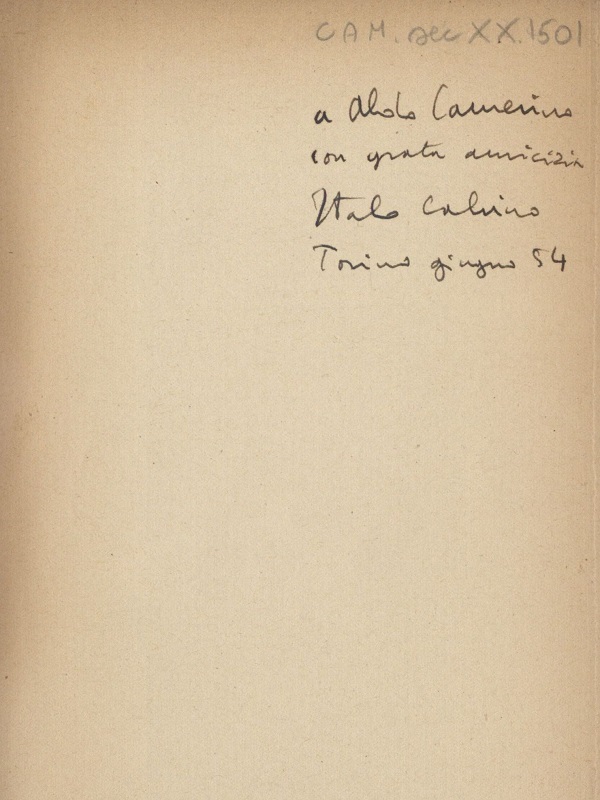 CAM. sec XX.1501
a Aldo Camerino
con grata amicizia
Italo Calvino
Torino giugno 54